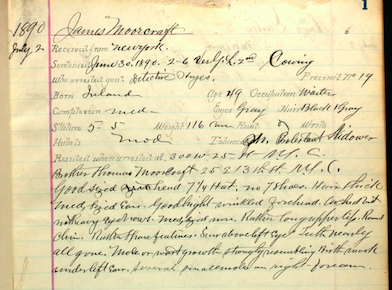 1
1890 James Moorcraft 6
July 2 Received from New York.
Sentenced June 30. 1890. 2-6 Cowing
Who arrested you Detective Hayes. Precinct No 19
Born Ireland Age 49 Occupation Waiter
Complexion med Eyes Gray Hair Black & Gray
Stature 5-5 Weight 116 Read Write
Habits mod Tobacco Protestant Widower
Resided when arrested at 300 W 25 St N.Y. C.
Brother Thomas Moorcraft 25 2 13th St N.Y. C.
Good sized head 7 1/4 Hat. no 7 Shoes. Hair thick
med sized Ears. Good height wrinkled forehead. Arched but
not heavy eyebrows. med sized nose. Rather long upper lip. Round
Chin. Rather Sharp features. Scar above left Eye. Teeth nearly
all gone. Mole or wart growth strongly resembling Birth mark
under left Ear. Several on right forearm.